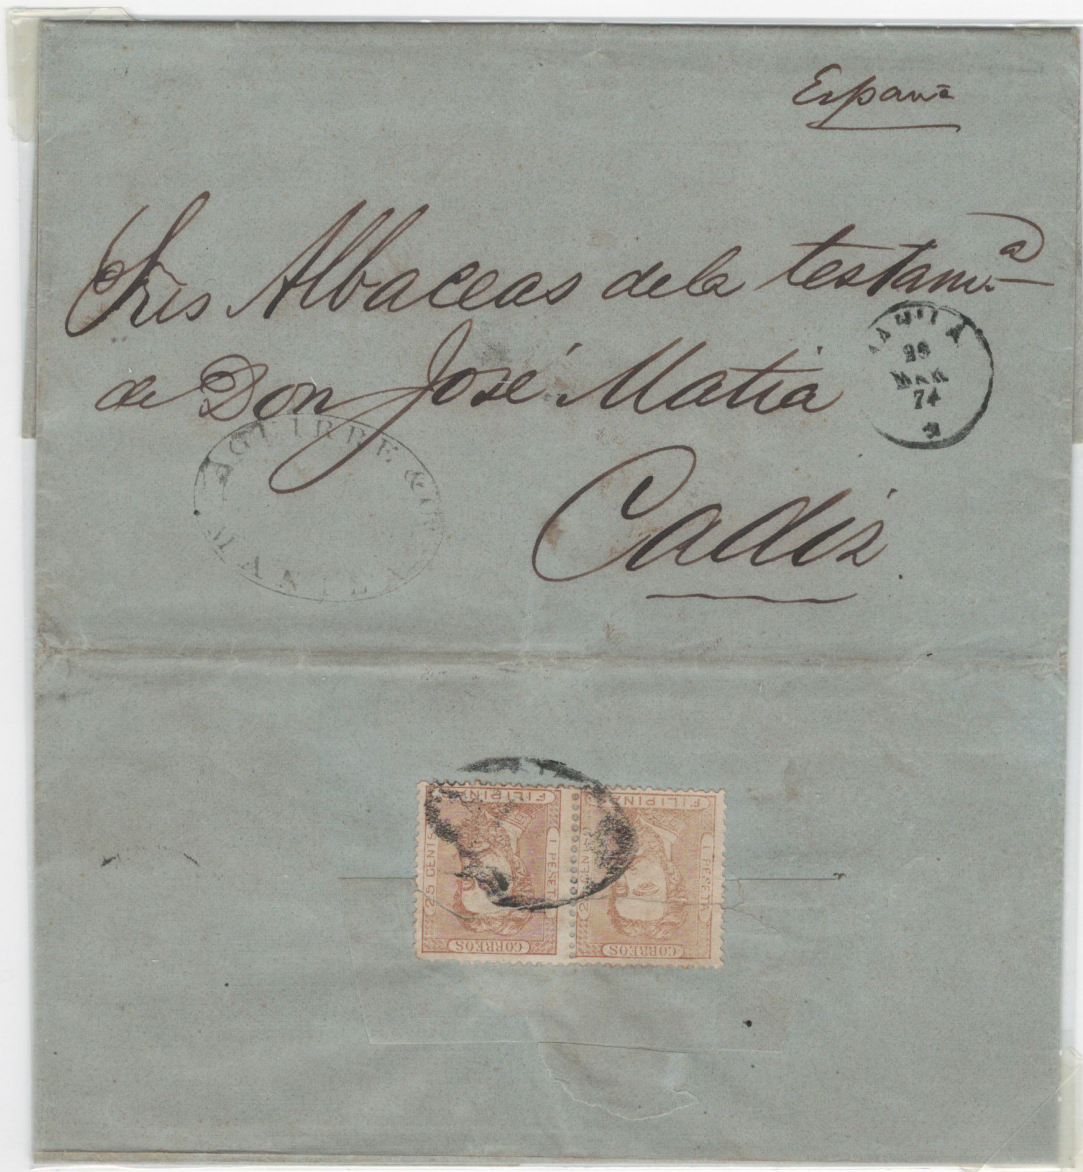 España
Sres Albaceas de la testam.ª
de Don José Matia
MANILA
28
MAR
74
AGUIRRE & Cª
MANILA
Cadiz
FILIPINA
25 CENTS
1 PESETA
CORREOS
FILIPINA
CENT
1 PESETA
CORREOS